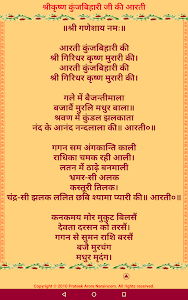 श्रीकृष्ण कुंजबिहारी जी की आरती
॥श्री गणेशाय नमः॥
आरती कुंजबिहारी की
श्री गिरिधर कृष्ण मुरारी की।
आरती कुंजबिहारी की
श्री गिरिधर कृष्ण मुरारी की।
गले में बैजन्तीमाला
बजावैं मुरलि मधुर बाला॥
श्रवण में कुंडल झलकाता
नंद के आनंद नन्दलाला की॥ आरती०॥
गगन सम अंगकान्ति काली
राधिका चमक रही आली।
लतन में ठाढ़े बनमाली
भ्रमर-सी अलक
कस्तूरी तिलक।
चंद्र-सी झलक ललित छबि श्यामा प्यारी की॥ आरती०॥
कनकमय मोर मुकुट बिलसैं
देवता दरसन को तरसैं।
गगन से सुमन राशि बरसैं
बजै मुरचंग
मधुर मृदंग।
Copyright © 2010 Prateek Arora Navankoor. All rights reserved.